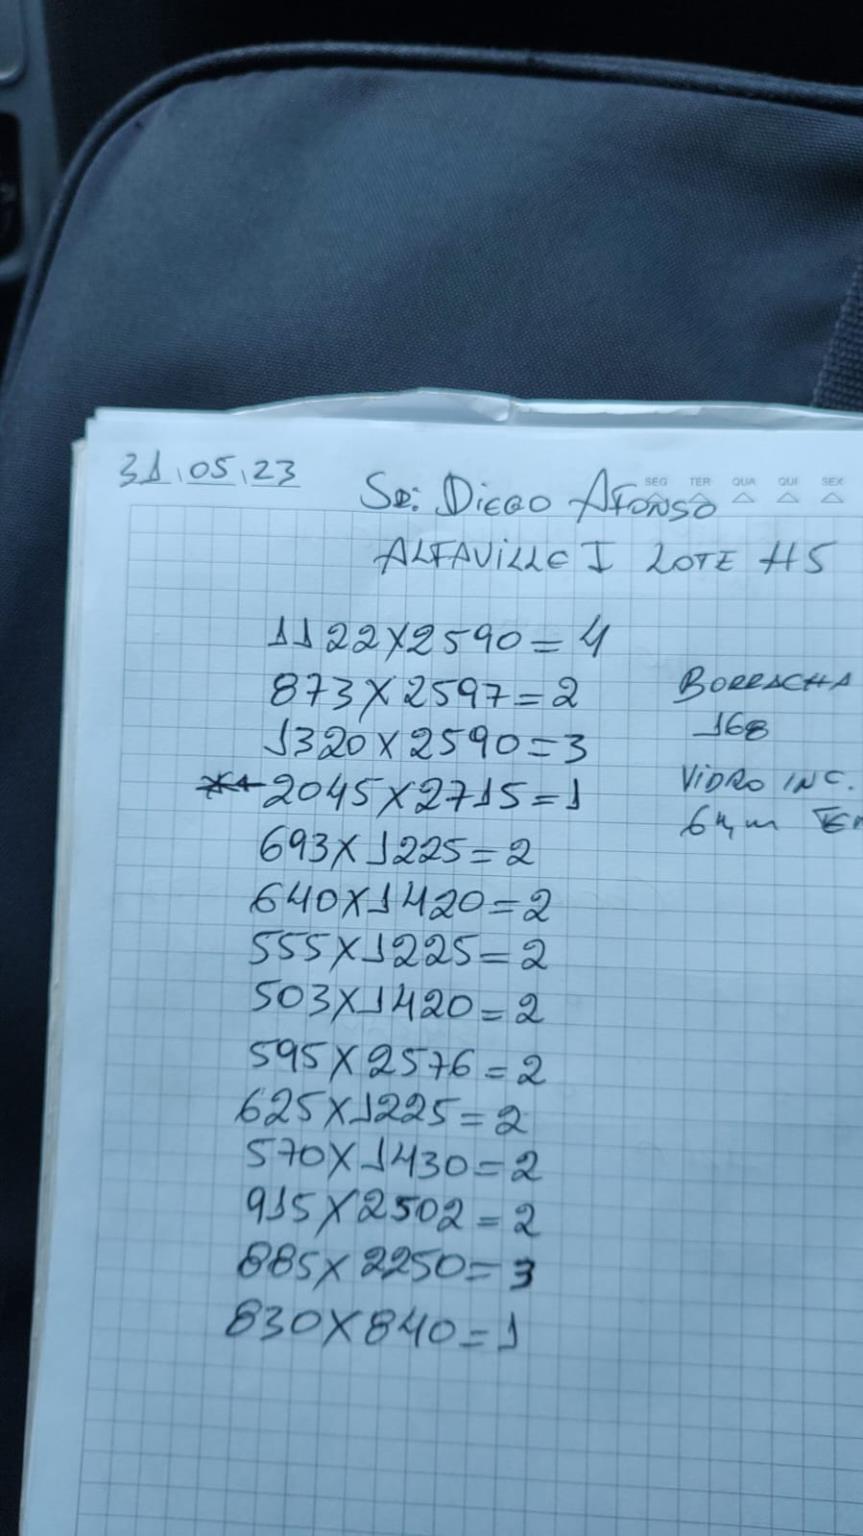 31.05.23
SEG TER QUA QUI SEX
SR: DIEGO AFONSO
ALFAVILLE I LOTE H5
1122X2590=4
873X2597=2
1320X2590=3
2045X2715=1
693X1225=2
640X1420=2
555X1225=2
503X1420=2
595X2576=2
625X1225=2
570X1430=2
915X2502=2
885X2250=3
830X840=1
BORRACHA
168
VIDRO INC.
6mm